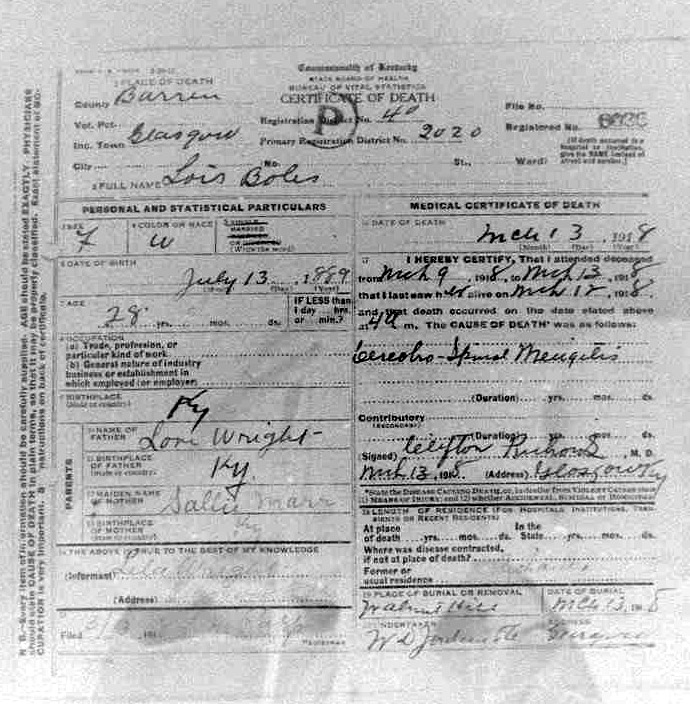 Commonwealth of Kentucky
STATE BOARD OF HEALTH
BUREAU OF VITAL STATISTICS
CERTIFICATE OF DEATH
1 PLACE OF DEATH
County Barren
Vot. Pct.
Inc. Town Glasgow
City
No. St., Ward)
Registration District No. 40
Primary Registration District No. 2020
File No.
Registered No.
[If death occurred in a hospital or institution, give its NAME instead of street and number.]
2 FULL NAME Lois Boles
PERSONAL AND STATISTICAL PARTICULARS
3 SEX F
4 COLOR OR RACE W
MARRIED
(Write the word)
6 DATE OF BIRTH
July 13 1889
(Month) (Day) (Year)
7 AGE
28 yrs. mos. ds.
IF LESS than 1 day hrs. or min.?
8 OCCUPATION
(a) Trade, profession, or particular kind of work
(b) General nature of industry business or establishment in which employed (or employer)
9 BIRTHPLACE
(State or country) Ky
PARENTS
10 NAME OF FATHER Wright
11 BIRTHPLACE OF FATHER
(State or country) Ky.
12 MAIDEN NAME OF MOTHER Sallie
13 BIRTHPLACE OF MOTHER
(State or country) Ky
14 THE ABOVE IS TRUE TO THE BEST OF MY KNOWLEDGE
(Informant)
(Address)
15
Filed 191
REGISTRAR
MEDICAL CERTIFICATE OF DEATH
16 DATE OF DEATH
Mch 13 1918
(Month) (Day) (Year)
17 I HEREBY CERTIFY, That I attended deceased
from Mch 9, 1918, to Mch 13, 1918
that I last saw her alive on Mch 12, 1918.
and that death occurred on the date stated above
at 4 a m. The CAUSE OF DEATH* was as follows:
Cerebro-Spinal Mengitis
(Duration) yrs. mos. ds.
Contributory
(SECONDARY)
(Duration) yrs. mos. ds.
(Signed) M. D.
Mch 13, 1918 (Address) Glasgow Ky
*State the DISEASE CAUSING DEATH, or, in deaths from VIOLENT CAUSES state
(1) MEANS OF INJURY; and (2) whether ACCIDENTAL, SUICIDAL or HOMICIDAL
18 LENGTH OF RESIDENCE (FOR HOSPITALS, INSTITUTIONS, TRANSIENTS OR RECENT RESIDENTS)
At place of death yrs. mos. ds.
In the State yrs. mos. ds.
Where was disease contracted,
if not at place of death?
Former or
usual residence
19 PLACE OF BURIAL OR REMOVAL
Walnut Hill
DATE OF BURIAL
Mch 13, 1918
20 UNDERTAKER
ADDRESS
Glasgow
N. B.—Every item of information should be carefully supplied. AGE should be stated EXACTLY. PHYSICIANS
should state CAUSE OF DEATH in plain terms, so that it may be properly classified. Exact statement of OC-
CUPATION is very important. instructions on back of certificate.